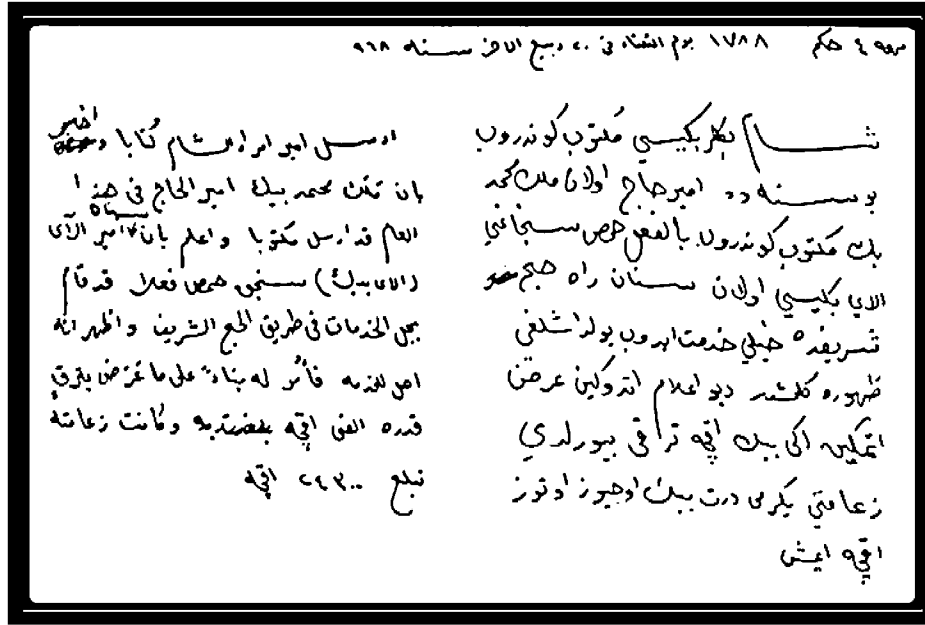 مهمه ٤ حكم ١٧٨٨ يوم الثلثاء في ٢٠ ربيع الاخر سنه ٩٦٨
شام بكلربكيسي مكتوب كوندروب
بو سنه ده امير حاج اولان ملك محمد
بك مكتوب كوندروب بالفعل حمص سنجاغي
الاي بكيسي اولان سنان راه حج
شريفده خيلي خدمت ايدوب يولداشلغي
ظهوره كلمشدر ديو اعلام اتدوكين عرض
اتمكين اكي بيك اقچه ترقي بيورلدي
زعامتي يكرمي درت بيك اوچيوز اوتوز
اقچه ايمش
ارسل امير امراء الشام كتابا اخبر
بان ملك محمد بيك امير الحاج في هذا
العام قد ارسل مكتوبا واعلم بان سنان امير الآلاي
(الاي بيك) سنجق حمص فعلا قد قام
بجل الخدمات في طريق الحج الشريف واظهر انه
اهل للخدمه فأمر له بناءً على ما عرض بترق
قدره الفي اقچه وكانت زعامته
تبلغ ٢٤٣٠٠ اقچه